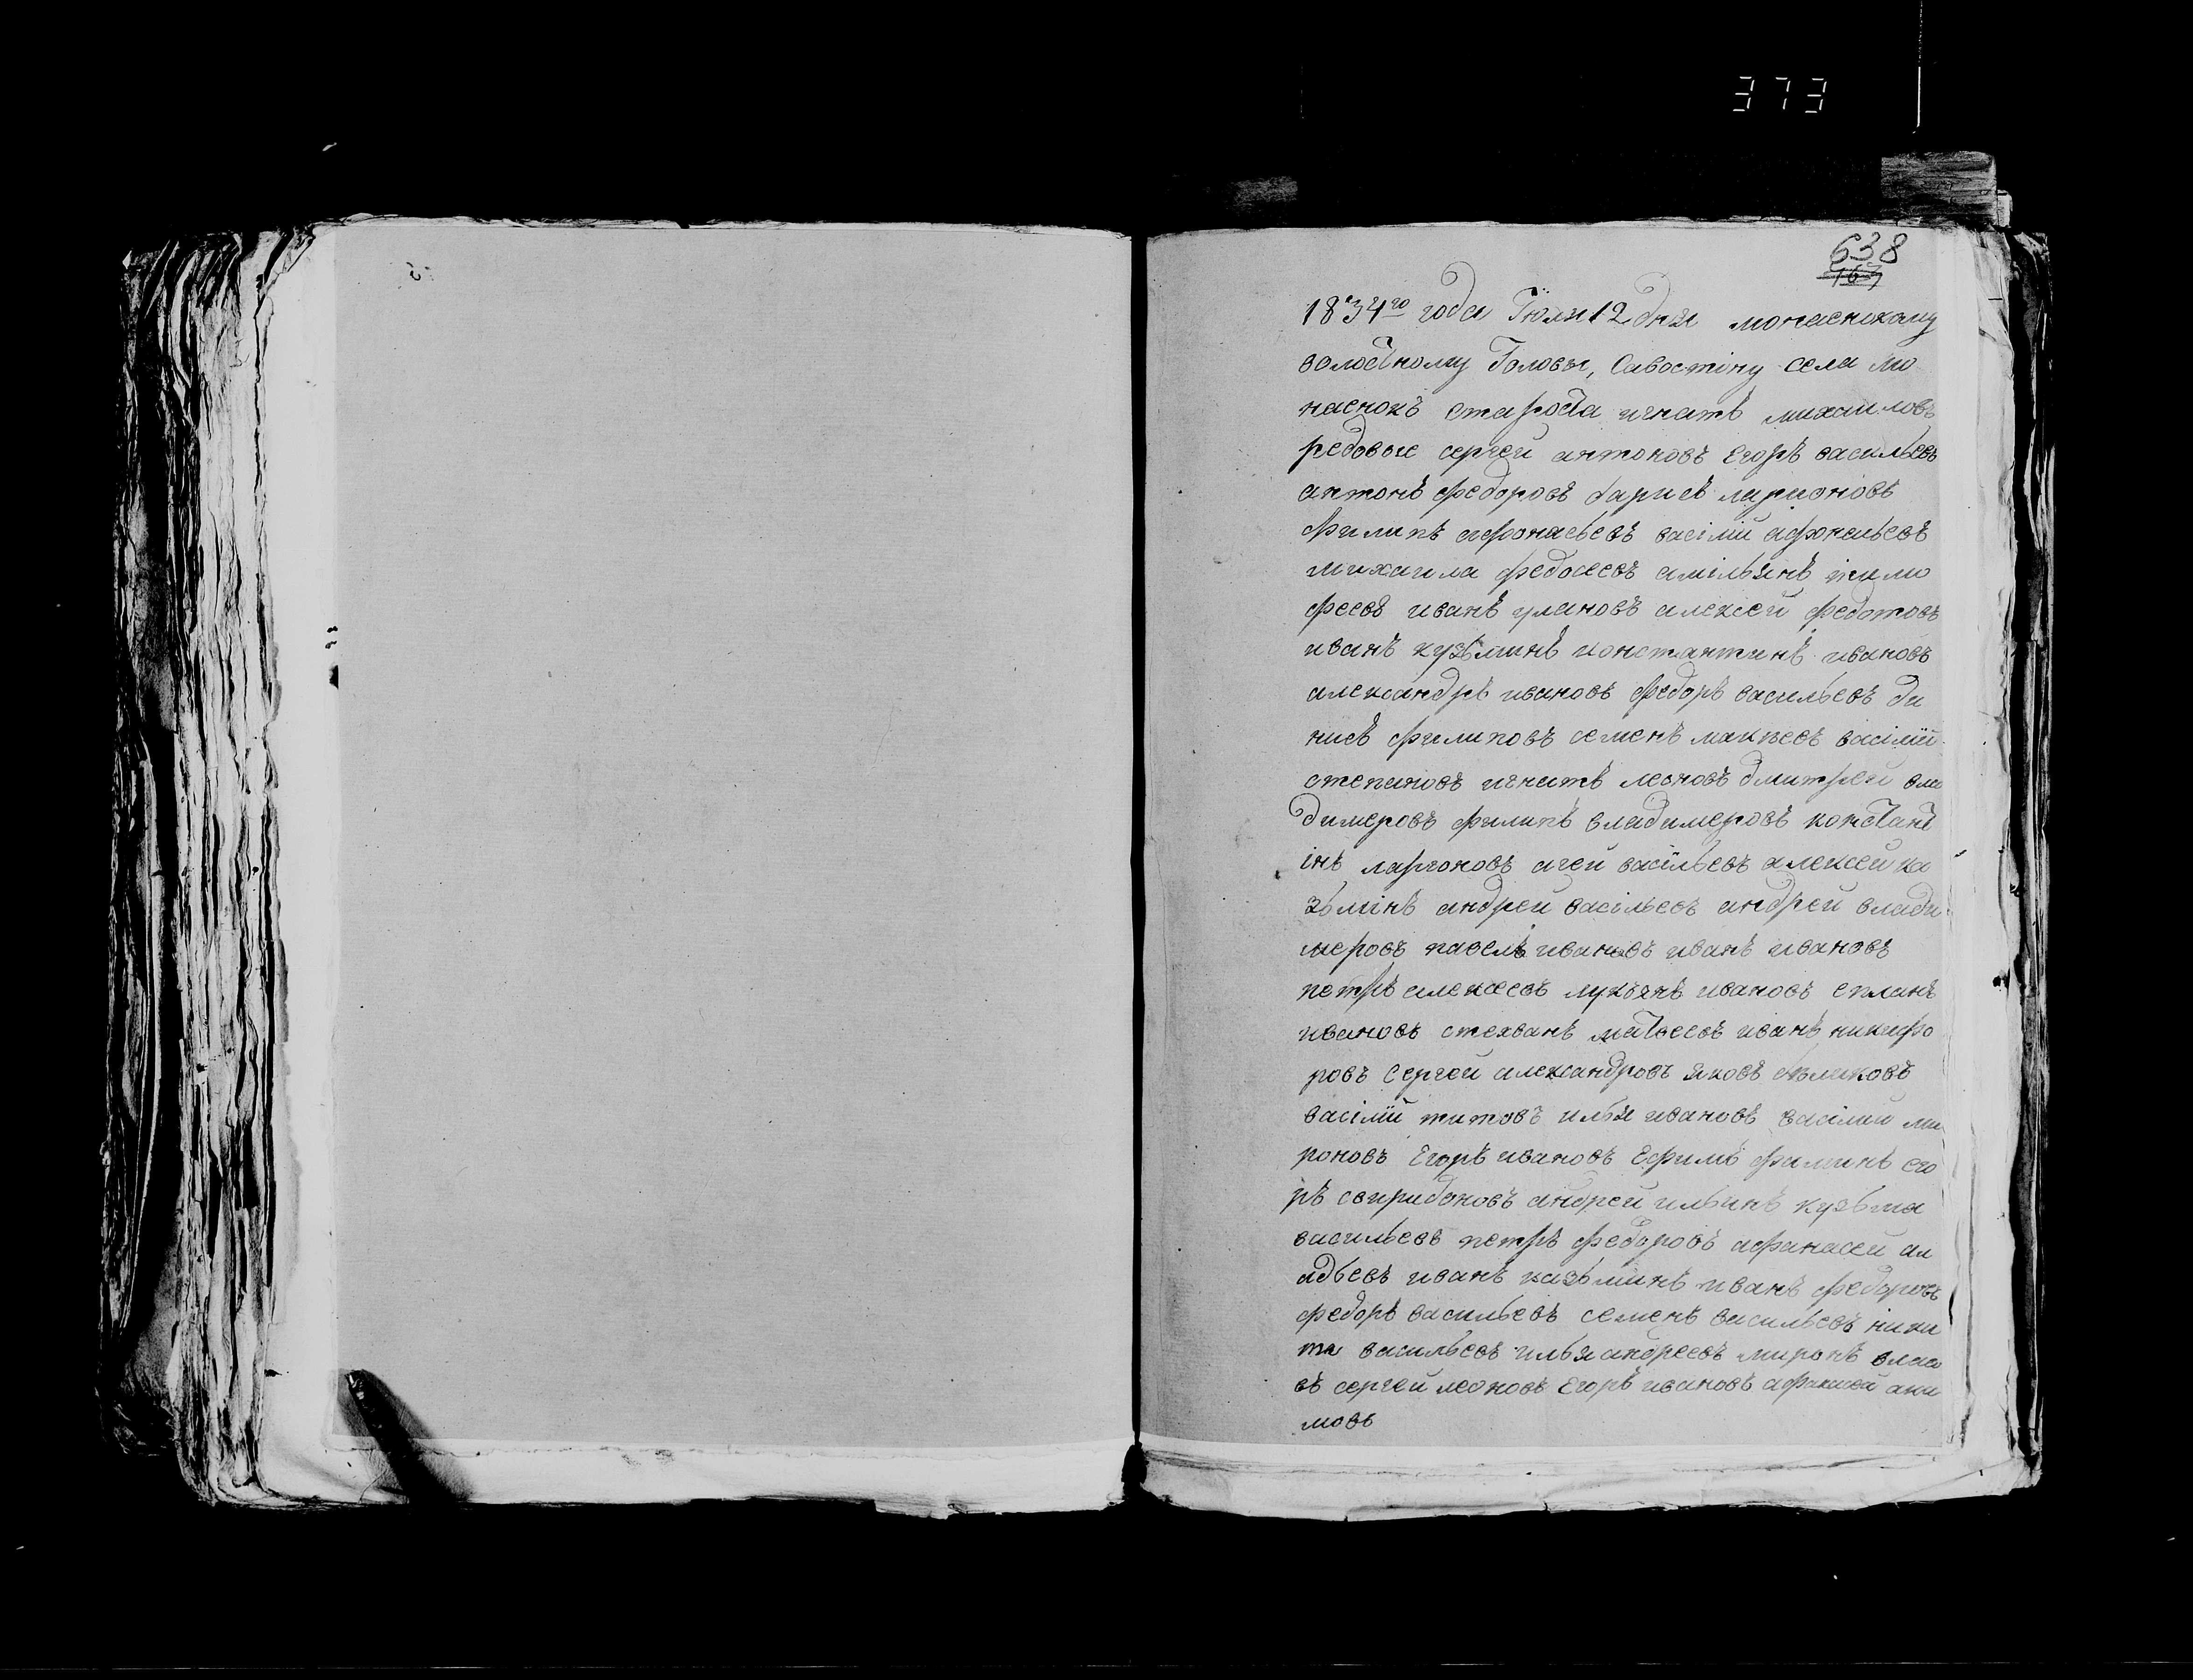 373
638
167
1834го года Июля 12 дня монаенскаму
волосному Головы, Савостіну села мо
наенокъ староста игнатъ михаиловъ
редовые сергей антоновъ Егоръ васильевъ
антонъ федоровъ барисъ ларионовъ
филипъ афонасьевъ васілій афонасьевъ
михаила федосеевъ амільянъ тимо
феевъ иванъ улановъ алексей федотовъ
иванъ кузьминъ константинъ ивановъ
александръ ивановъ федоръ васильевъ ди
нисъ филиповъ семенъ макѣевъ васілій
степановъ игнатъ леоновъ дмитрей вла
димеровъ филипъ владимеровъ констант
інъ ларионовъ агей васільевъ алексей ка
зьмінъ андрей васільевъ андрей влади
меровъ павелъ ивановъ иванъ ивановъ
петръ алексеевъ лукьянъ ивановъ
ивановъ степванъ матвеевъ иванъ никифо
ровъ Сергей александровъ яковъ
васілій титовъ илья ивановъ васілий ми
роновъ Егоръ ивановъ Ефимъ филинъ его
ръ свиридоновъ андрей ильинъ кузьма
васильевъ петръ федоровъ афанасей ал
адьевъ иванъ казьминъ иванъ федоровъ
федоръ васильевъ семенъ васильевъ ники
та васильевъ илья андреевъ миронъ власо
въ сергей леоновъ Егоръ ивановъ афанасей аки
мовъ